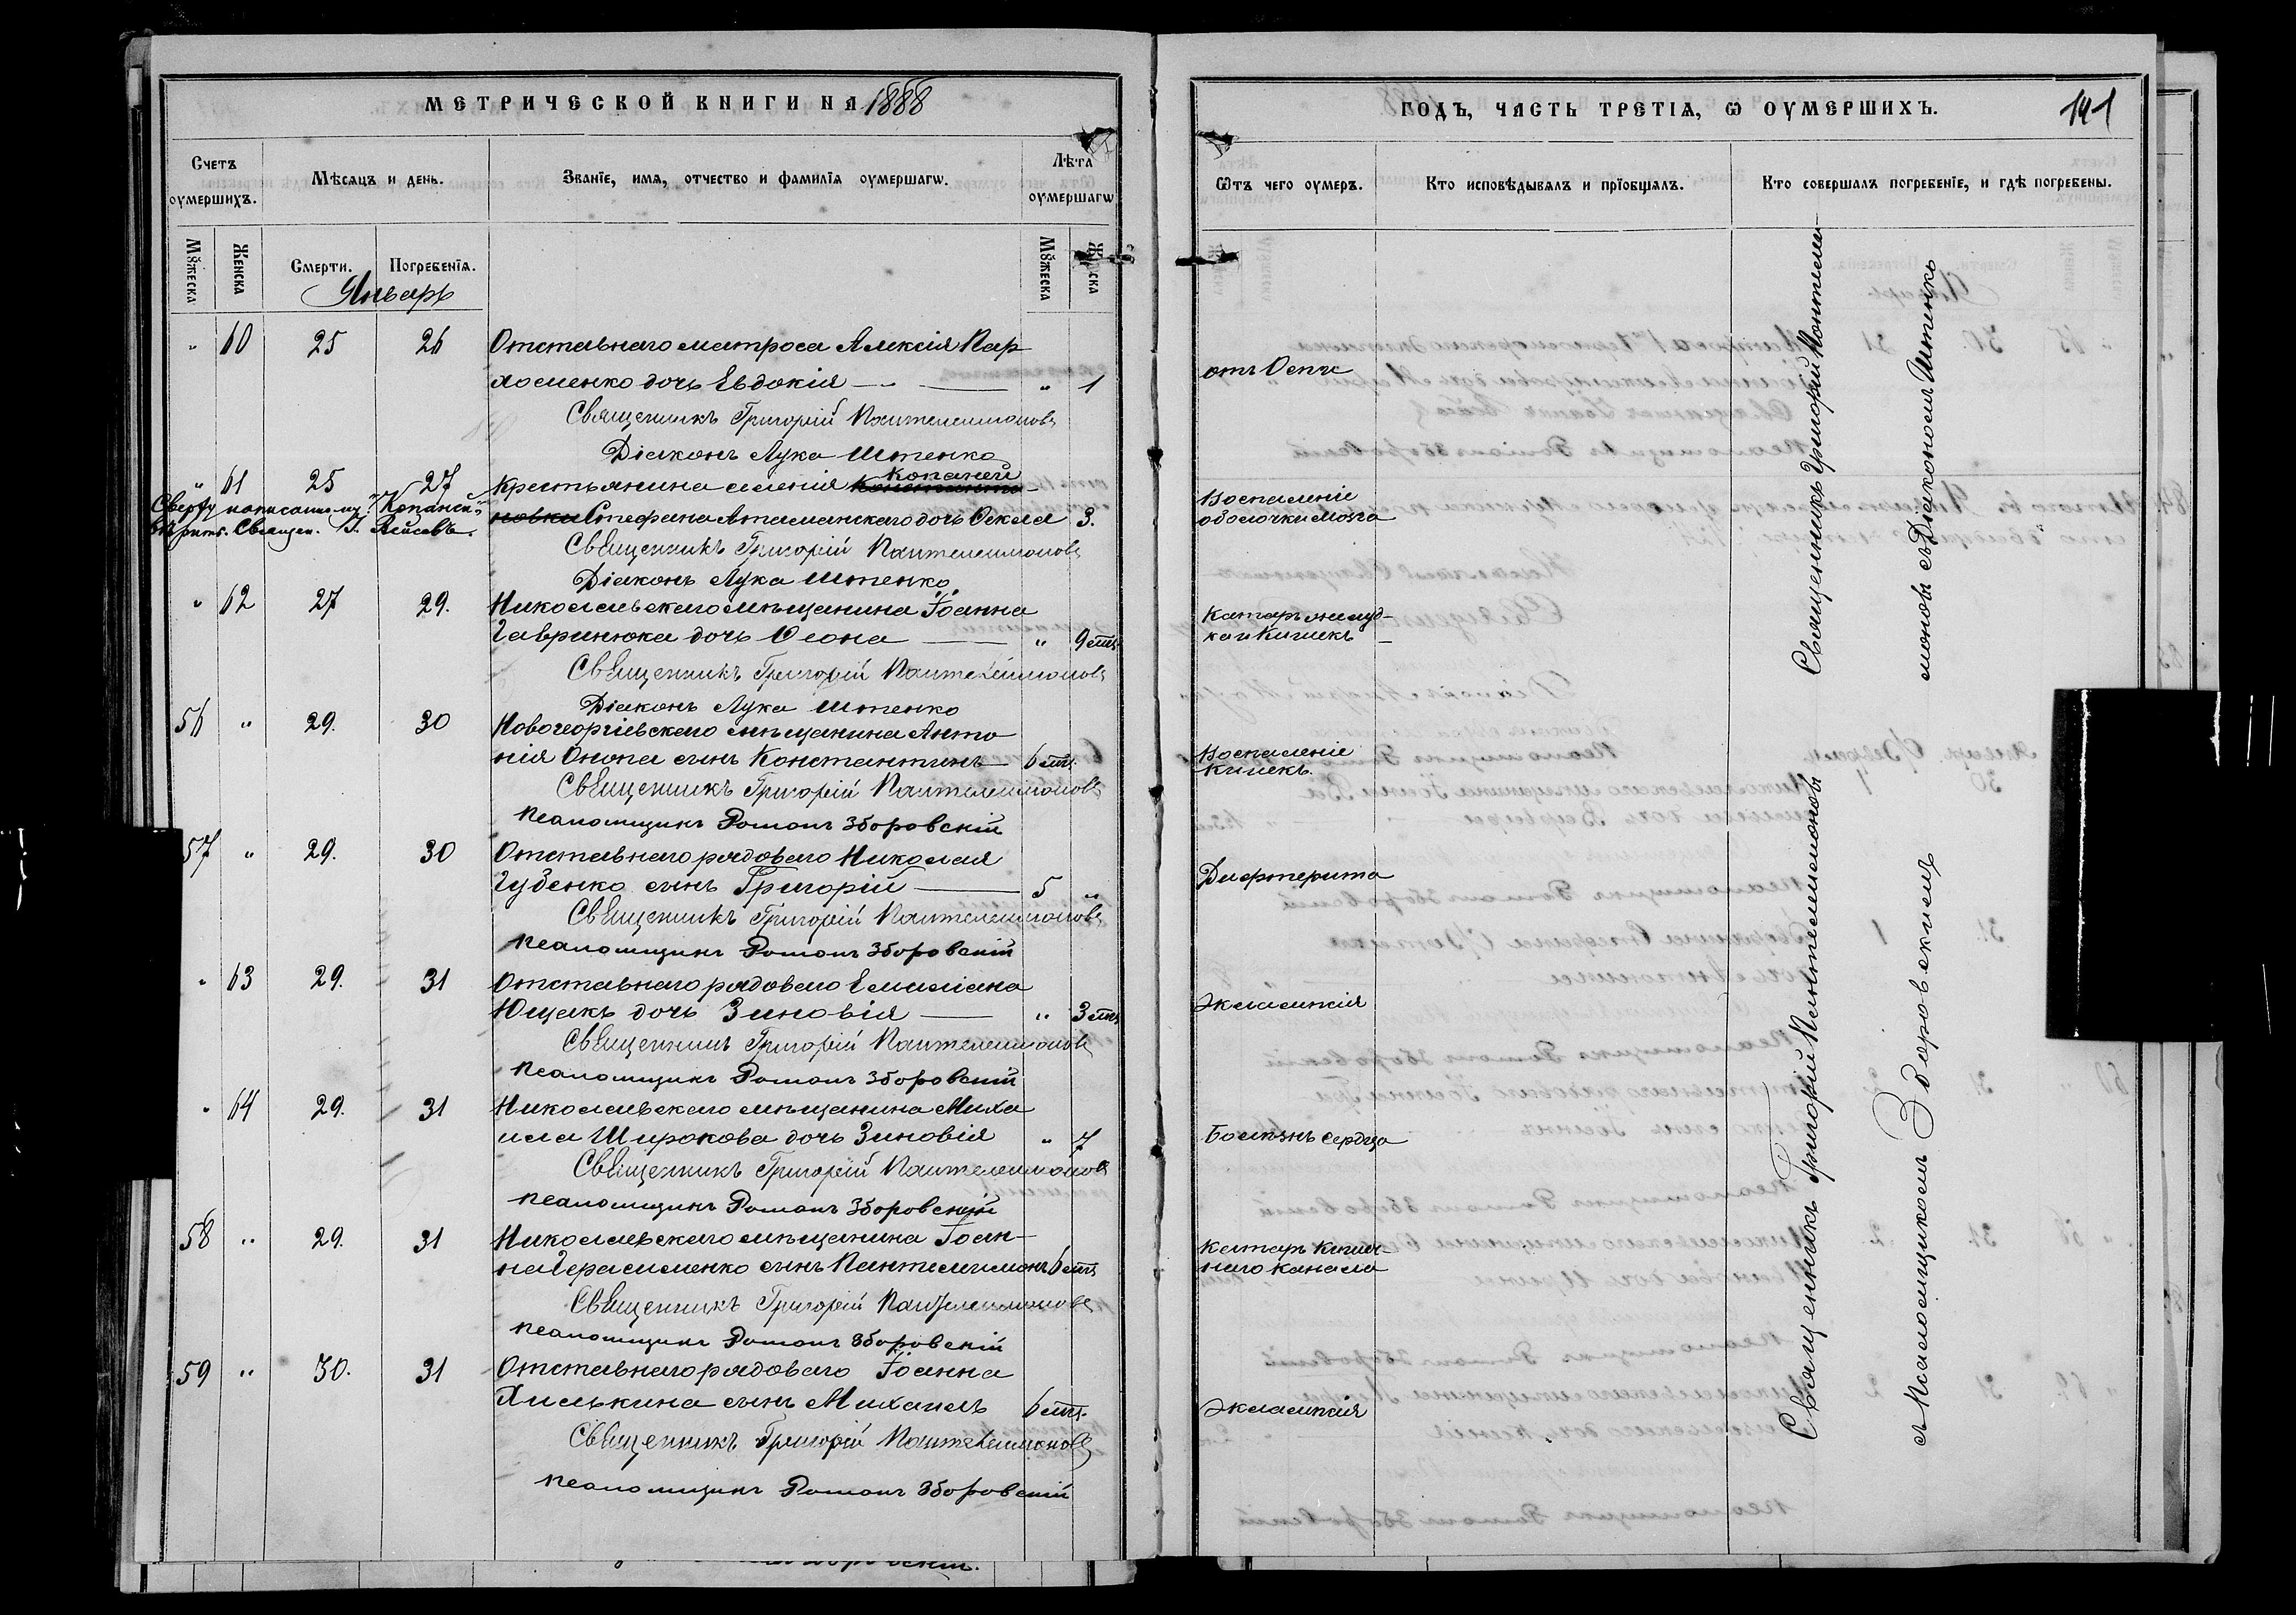 МЕТРИЧЕСКОЙ КНИГИ НА 1888
Счетъ оумершихъ.
Мѣсяцъ и день.
Званїе, имя, отчество и фамилїя оумершагѡ.
Лѣта оумершагѡ
Мꙋжеска
Женска
Смерти.
Погребенїя.
Мꙋжеска
Женска
Январь
" 60 25 26 Отставнаго матроса Алексія Пар
хоменко дочь Евдокія " 1
Священникъ Григорій Пантелеимоновъ
Діаконъ Лука Штенко
Копаней
" 61 25 27 Крестьянина селенія Константи-
Сверху написанному "Копаней"
новки Стефана Атаманскаго дочь Ѳекла 3.
вѣрить. Священ.
Священникъ Григорій Пантелеимоновъ
Діаконъ Лука Штенко
" 62 27 29. Николаевскаго мѣщанина Іоанна
Гавринюка дочь Ѳеона " 9 мц.
Священникъ Григорій Пантелеимоновъ
Діаконъ Лука Штенко
56 " 29. 30 Новогеоргіевскаго мѣщанина Анто
нія Онопа сынъ Константинъ 6 мц.
Священникъ Григорій Пантелеимоновъ
Псаломщикъ Романъ Зборовскій
57 " 29. 30 Отставнаго рядоваго Николая
Губенко сынъ Григорій 5 "
Священникъ Григорій Пантелеимоновъ
Псаломщикъ Романъ Зборовскій
" 63 29. 31 Отставнаго рядоваго Емиліана
Ющакъ дочь Зиновія " 3 мц
Священникъ Григорій Пантелеимоновъ
Псаломщикъ Романъ Зборовскій
" 64 29. 31 Николаевскаго мѣщанина Миха
ила Широкова дочь Зиновія " 7
Священникъ Григорій Пантелеимоновъ
Псаломщикъ Романъ Зборовскій
58 " 29. 31 Николаевскаго мѣщанина Іоан-
на Герасименко сынъ Пантелеимонъ 6 мц
Священникъ Григорій Пантелеимоновъ
Псаломщикъ Романъ Зборовскій
59 " 30. 31 Отставнаго рядоваго Іоанна
Хилькина сынъ Михаилъ 6 мц.
Священникъ Григорій Пантелеимоновъ
Псаломщикъ Романъ Зборовскій
ГОДЪ, ЧАСТЬ ТРЕТІЯ, Ѡ ОУМЕРШИХЪ.
141
Ѿтъ чего оумеръ.
Кто исповѣдывалъ и прїобщалъ.
Кто совершалъ погребенїе, и гдѣ погребены.
отъ Оспы
Воспаленіе
оболочки мозга
Катаръ желуд-
ка и Кишекъ
Воспаленіе
кишекъ.
Дифтерита
Эклампсія
Болѣзнь сердца
Катаръ Кишеч-
наго канала
Эклампсія
Священникъ Григорій Пантелеи-
моновъ съ Діакономъ Штенко
Священникъ Григорій Пантелеимоновъ
съ Псаломщикомъ Зборовскимъ